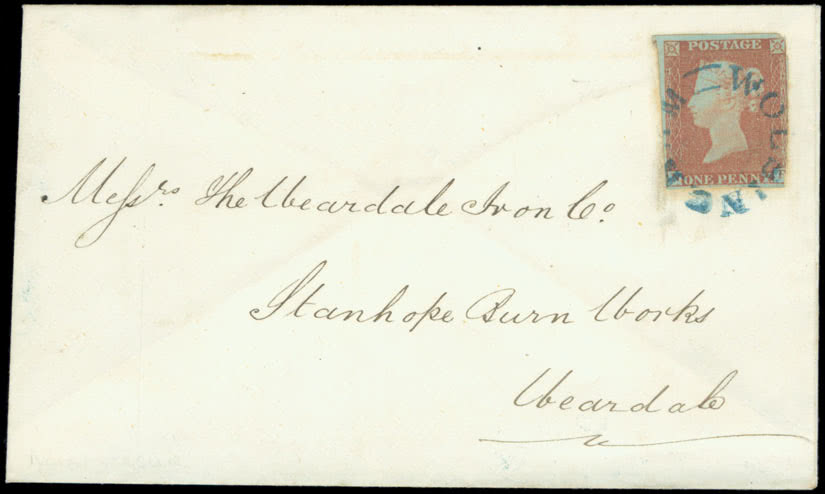 POSTAGE
ONE PENNY
WOLSINGHAM
Messrs. The Weardale Iron Co.
Stanhope Burn Works
Weardale